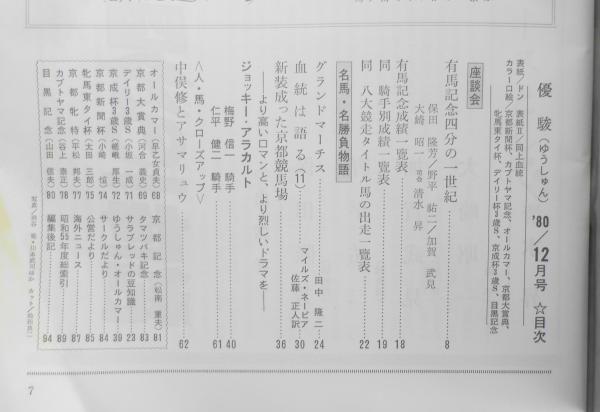 優駿（ゆうしゅん）'80／12月号 ☆目次
表紙／ドン 表紙Ⅱ／同上血統
カラー口絵／京都新聞杯、カブトヤマ記念、オールカマー、京都大賞典、
牝馬東タイ杯、デイリー杯3歳S、京成杯3歳S、目黒記念
座談会
有馬記念四分の一世紀……8
保田 隆芳／野平 祐二／加賀 武見
大崎 昭一／司会 清水 昇
有馬記念成績一覧表……18
同 騎手別成績一覧表……19
同 八大競走タイトル馬の出走一覧表……22
名馬・名勝負物語
グランドマーチス……田中 隆二…24
血統は語る（11）……マイルズ・ネーピア 佐藤 正人訳…30
新装成った京都競馬場……36
――より高いロマンと、より烈しいドラマを――
ジョッキー・アラカルト
梅野 信一 騎手……40
仁平 健二 騎手……61
〈人・馬・クローズアップ〉
中俣修とアサマリュウ……62
オールカマー（早乙女貞夫）68
京都大賞典（河合 義史）69
デイリー3歳S（小坂 一成）71
京成杯3歳S（嵯峨 厚生）72
京都新聞杯（小崎 愃）74
牝馬東タイ杯（太田 三郎）75
京都牝特（平松 邦夫）77
カブトヤマ記念（谷上 崇正）78
目黒記念（山田 信夫）80
京都記念（松南 重夫）81
タマツバキ記念……83
サラブレッドの豆知識……23
ゆうしゅん・オールカマー……39
サークルだより……84
公営だより……85
海外ニュース……87
昭和55年度総索引……89
編集後記……94
7